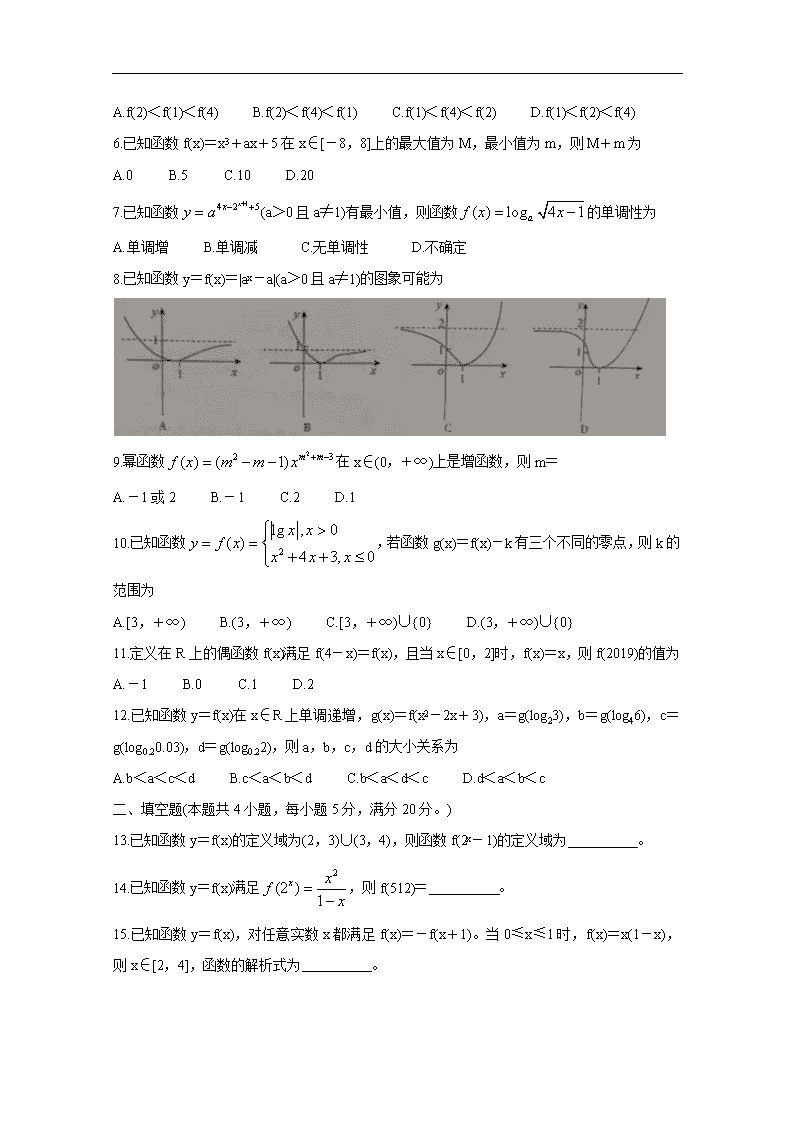 A.f(2)＜f(1)＜f(4) B.f(2)＜f(4)＜f(1) C.f(1)＜f(4)＜f(2) D.f(1)＜f(2)＜f(4)
6.已知函数 f(x)＝x³＋ax＋5 在 x∈[－8，8]上的最大值为 M，最小值为 m，则 M＋m 为
A.0 B.5 C.10 D.20
7.已知函数 y = a^{4^x-2^{x+1}+5}(a＞0 且 a≠1)有最小值，则函数 f(x) = log_a √(4x-1) 的单调性为
A.单调增 B.单调减 C.无单调性 D.不确定
8.已知函数 y＝f(x)＝|aˣ－a|(a＞0 且 a≠1)的图象可能为
y 1 o 1 x A
y 1 o 1 x B
y 2 1 o 1 x C
y 2 1 o 1 x D
9.幂函数 f(x) = (m² - m - 1)x^{m²+m-3} 在 x∈(0，＋∞)上是增函数，则 m＝
A.－1 或 2 B.－1 C.2 D.1
10.已知函数 y = f(x) = { |lg x|, x > 0
x² + 4x + 3, x ≤ 0 ，若函数 g(x)＝f(x)－k 有三个不同的零点，则 k 的
范围为
A.[3，＋∞) B.(3，＋∞) C.[3，＋∞)∪{0} D.(3，＋∞)∪{0}
11.定义在 R 上的偶函数 f(x)满足 f(4－x)＝f(x)，且当 x∈[0，2]时，f(x)＝x，则 f(2019)的值为
A.－1 B.0 C.1 D.2
12.已知函数 y＝f(x)在 x∈R 上单调递增，g(x)＝f(x²－2x＋3)，a＝g(log₂3)，b＝g(log₄6)，c＝
g(log₀.₂0.03)，d＝g(log₀.₂2)，则 a，b，c，d 的大小关系为
A.b＜a＜c＜d B.c＜a＜b＜d C.b＜a＜d＜c D.d＜a＜b＜c
二、填空题(本题共 4 小题，每小题 5 分，满分 20 分。)
13.已知函数 y＝f(x)的定义域为(2，3)∪(3，4)，则函数 f(2ˣ－1)的定义域为__________。
14.已知函数 y＝f(x)满足 f(2ˣ) = x²/(1-x)，则 f(512)＝__________。
15.已知函数 y＝f(x)，对任意实数 x 都满足 f(x)＝－f(x＋1)。当 0≤x≤1 时，f(x)＝x(1－x)，
则 x∈[2，4]，函数的解析式为__________。